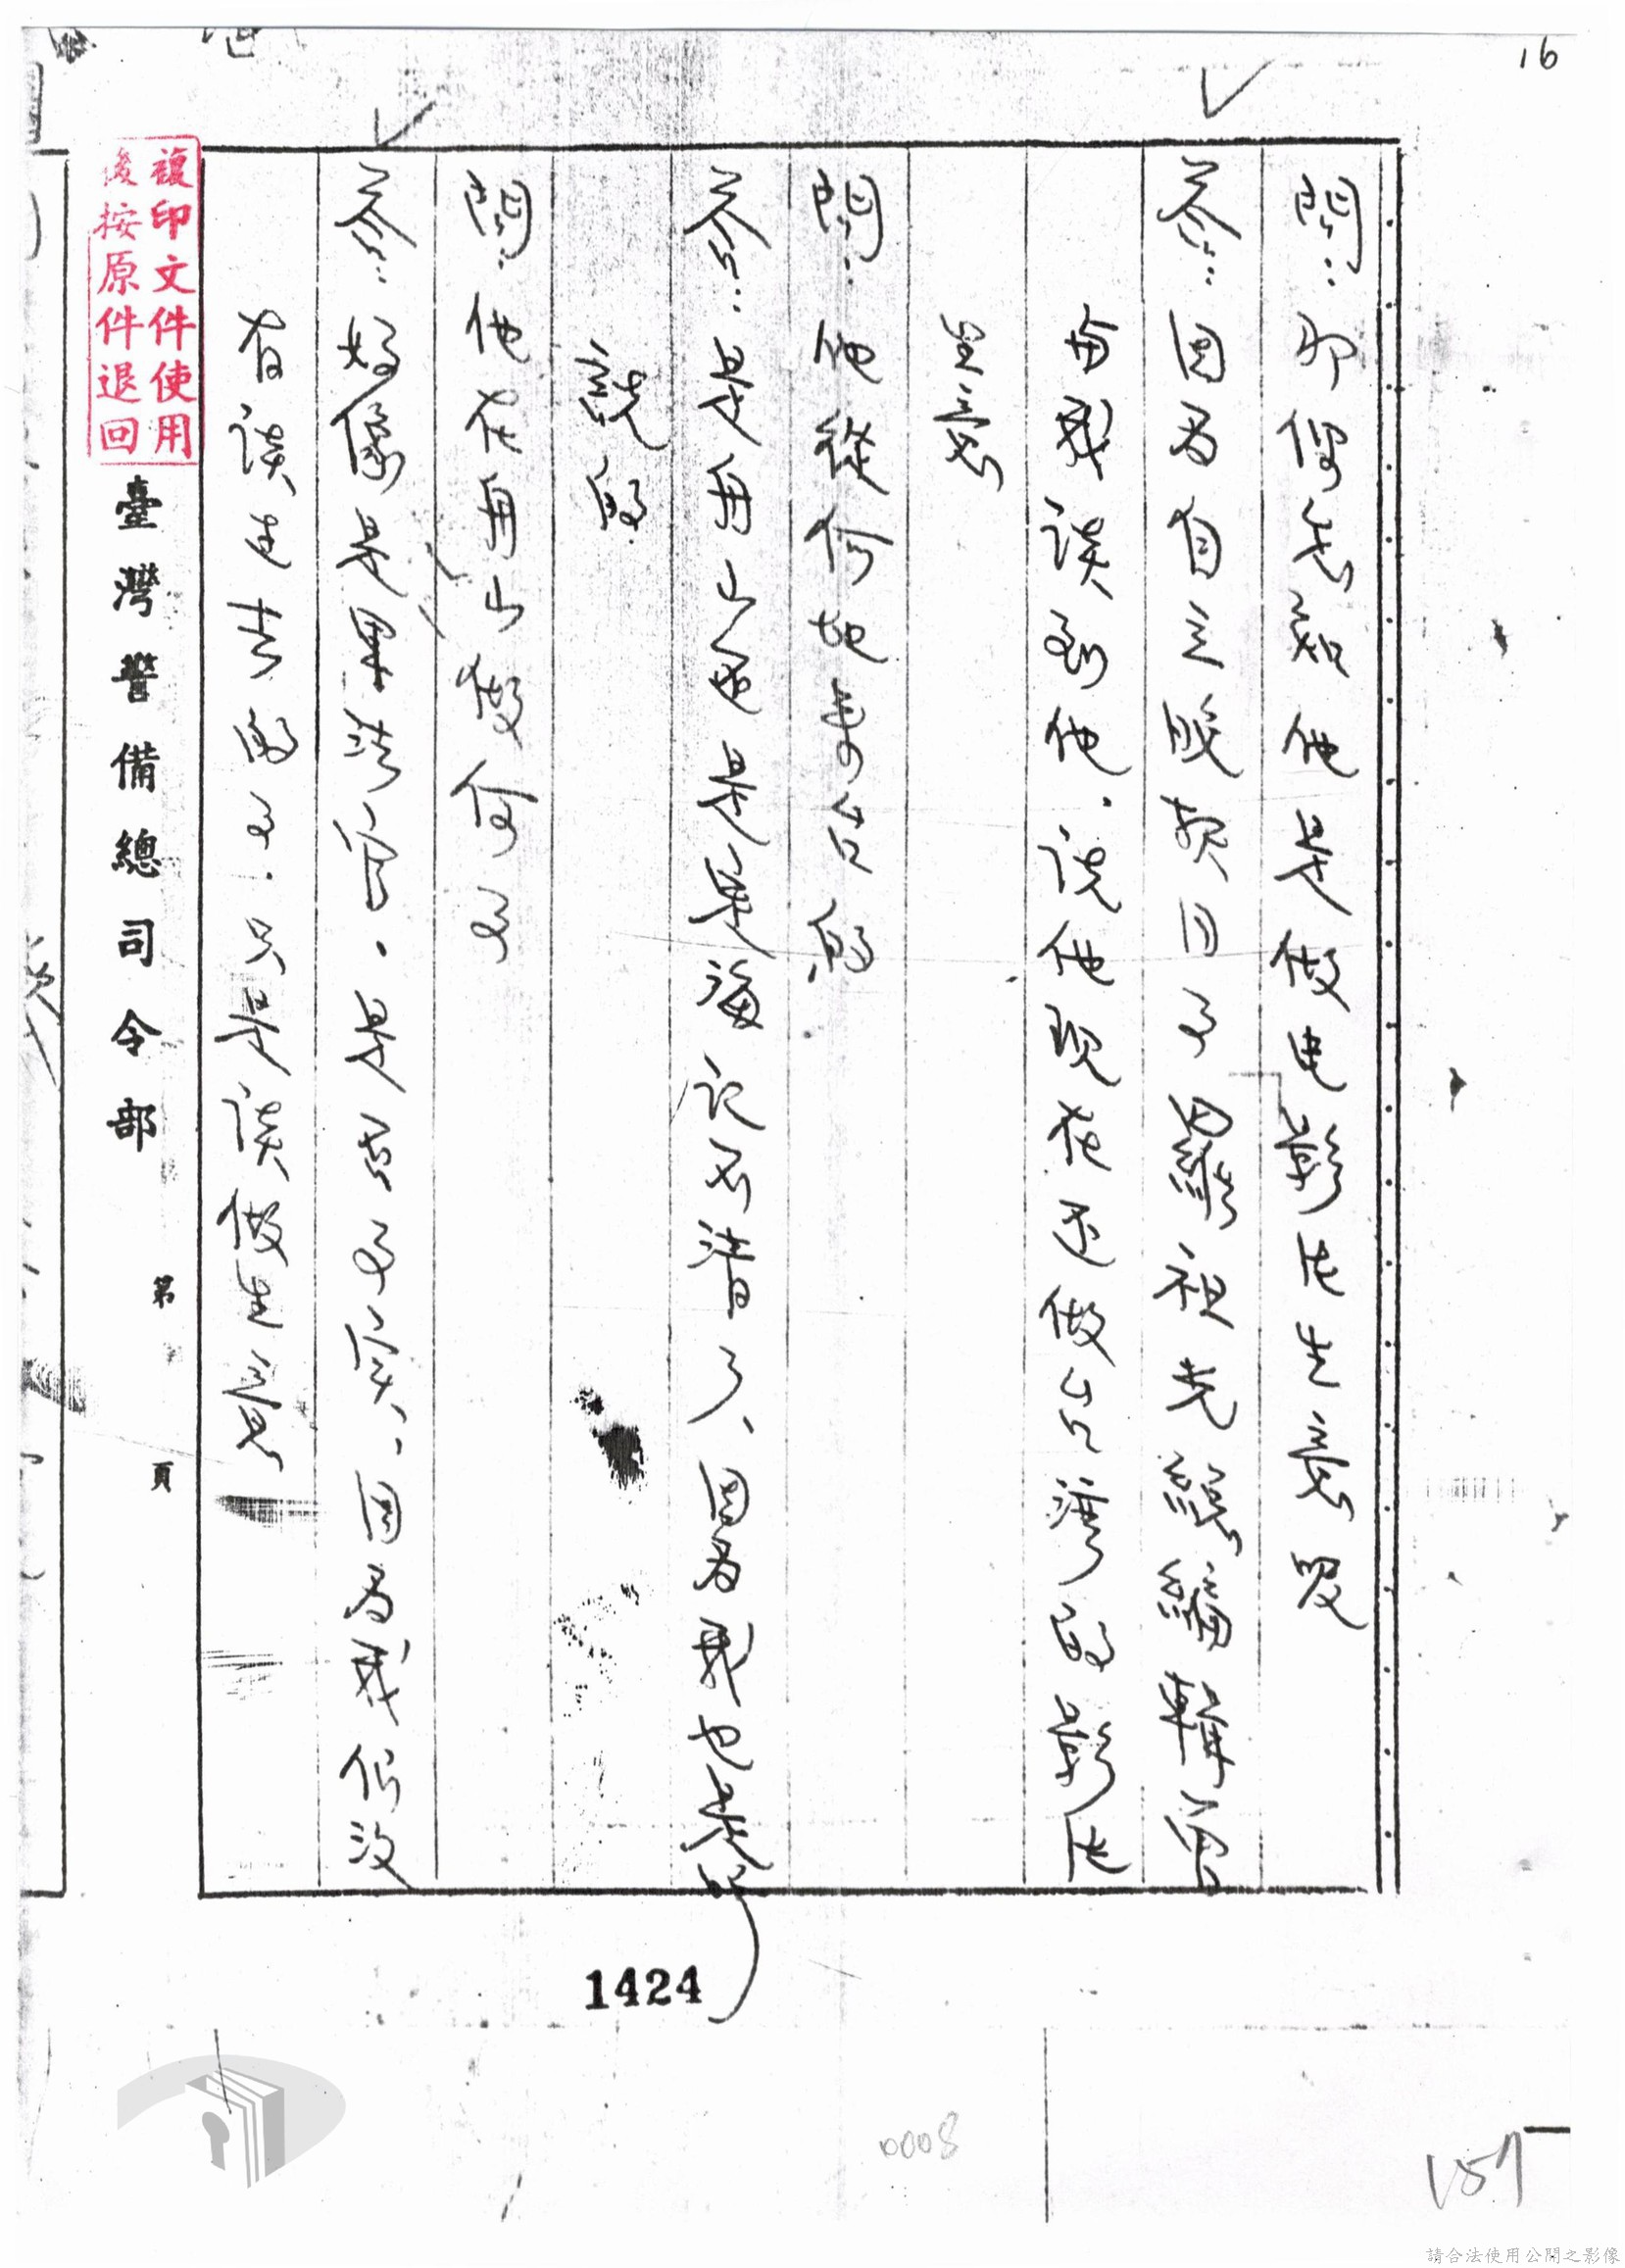 16
問：那你怎知他是做电影片生意呢
答：因为自立晚報日本羅祖光總編輯曾
与我談到他．說他現在还做台湾的影片
生意
問：他從何地來台的
答：是舟山還是上海記不清了、因为我也
說的
問：他在舟山做何事
答：好像是軍法官．是否事实、因为我們沒
有談过去的事．只是談做生意
複印文件使用
後按原件退回
臺灣警備總司令部
第 頁
1424
0008
157
請合法使用公開之影像